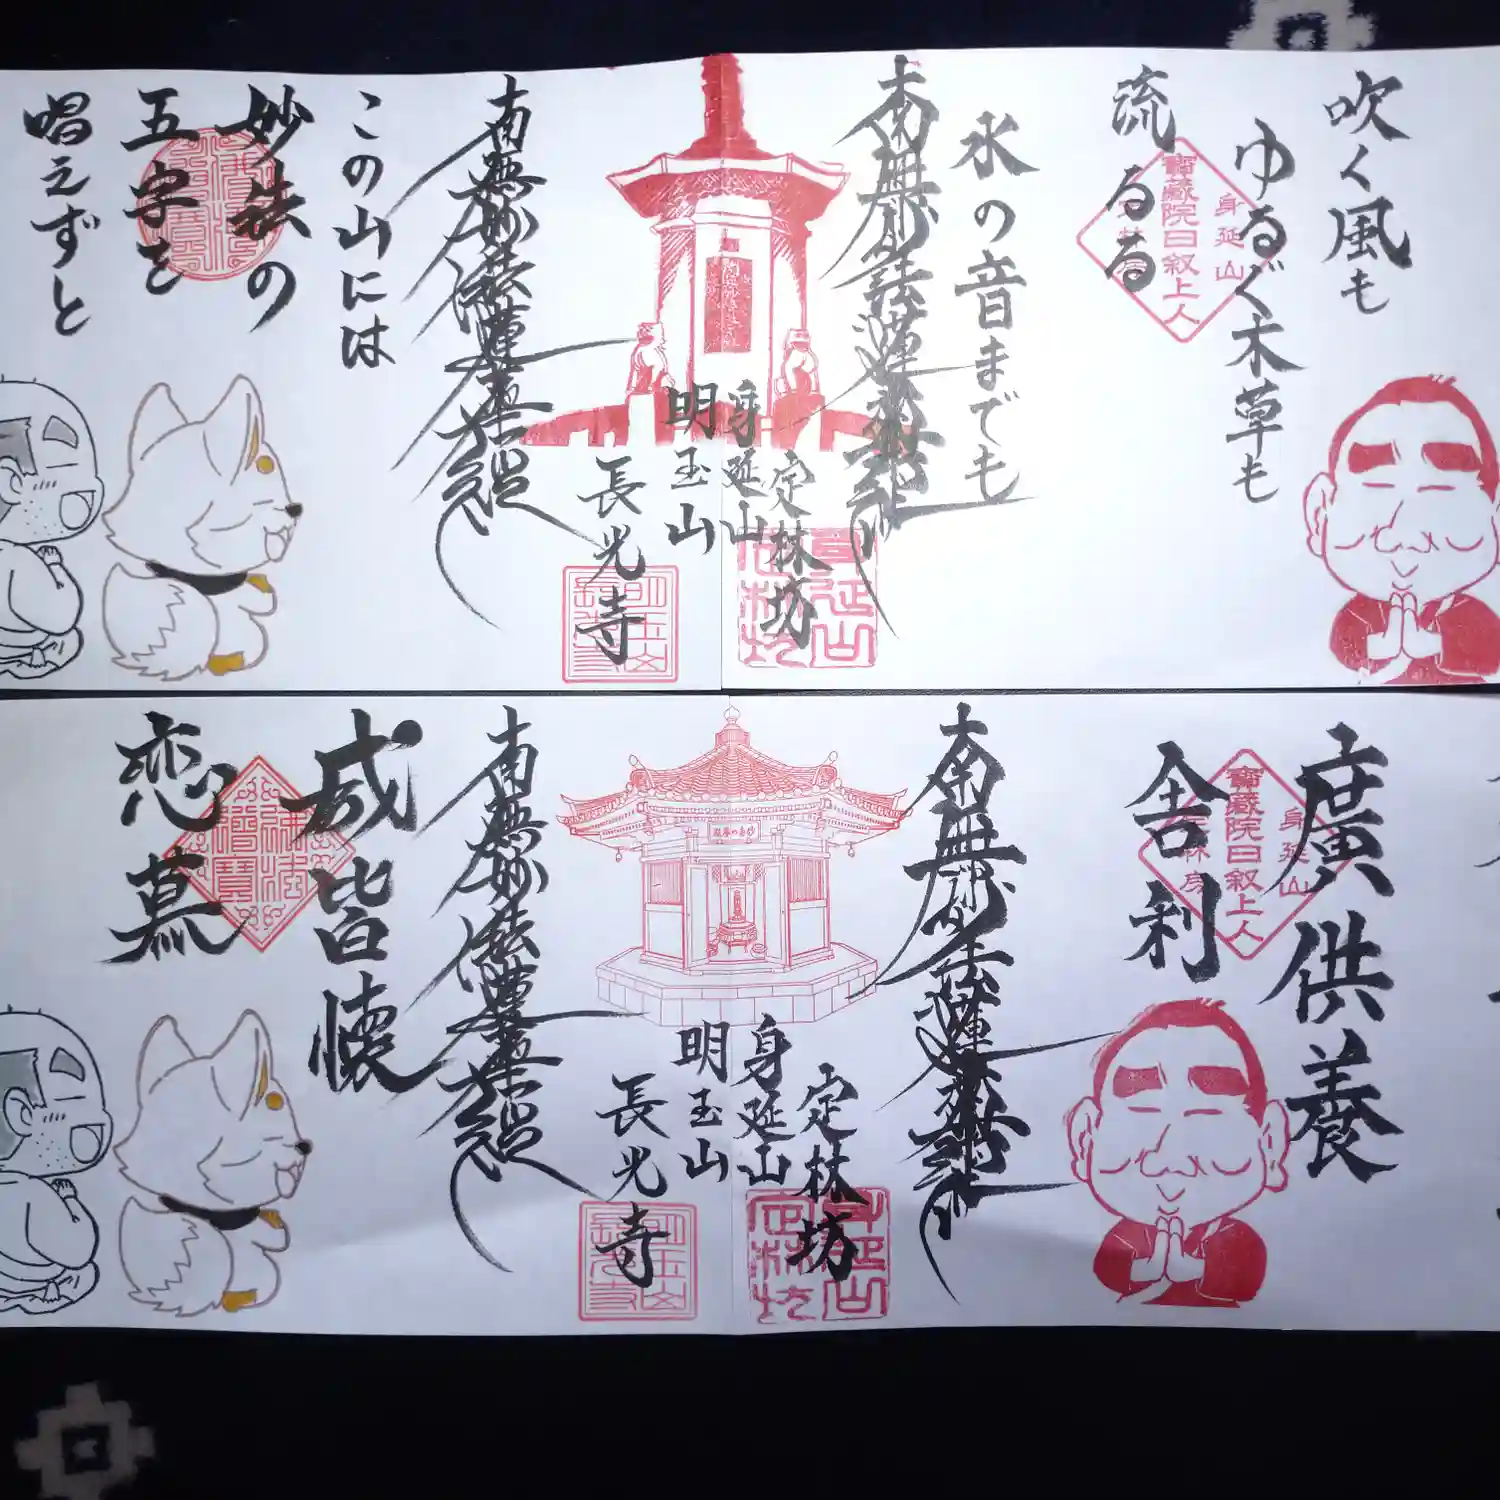 吹く風も
ゆるぐ木草も
流るる
水の音までも
南無妙法蓮華経
身延山
定林坊
寶藏院日叙上人
身延山
明玉山
長光寺
南無妙法蓮華経
この山には
妙法の
五字を
唱えずと
廣供養
舎利
寶藏院日叙上人
身延山
南無妙法蓮華経
身延山
定林坊
妙玉山
明玉山
長光寺
南無妙法蓮華経
咸皆懐
恋慕
佛法僧寶